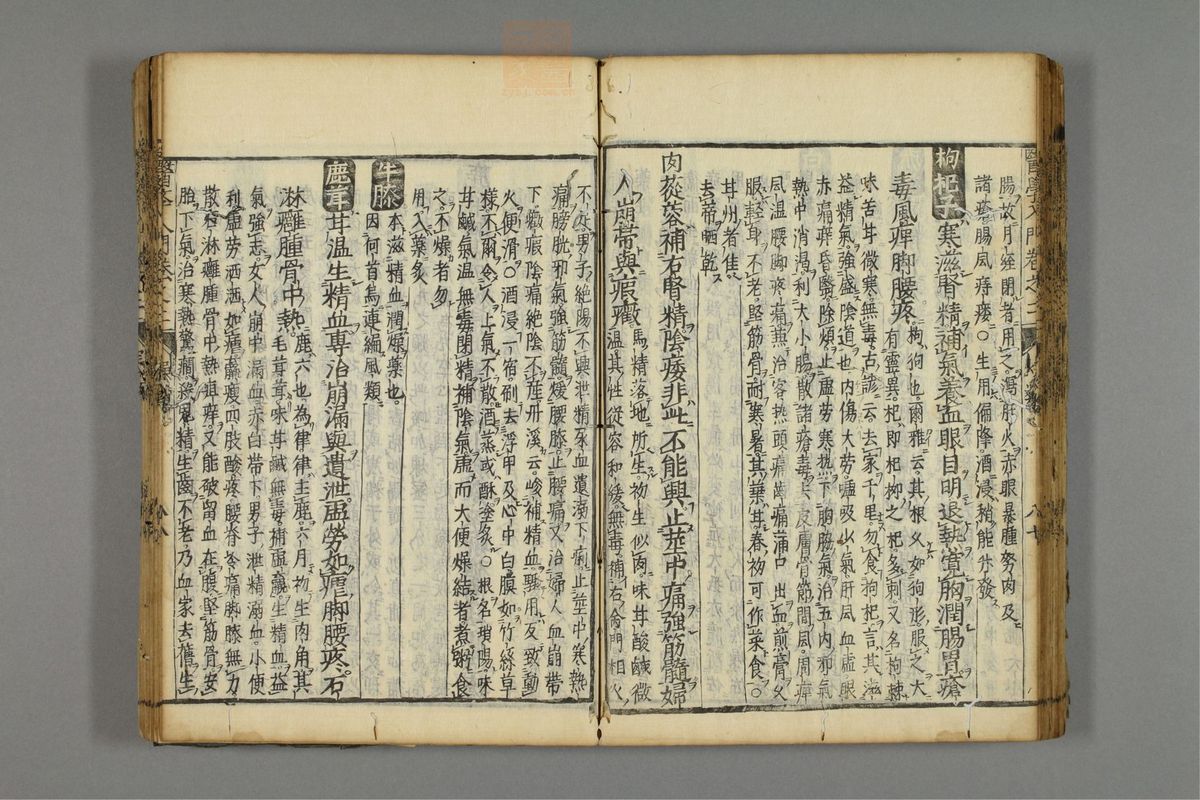 醫學入門卷之二
腸故月經閉者用之瀉肝火赤眼暴腫努肉及
諸瘡腸風痔瘻○生用偏降酒浸稍能升發
枸杞子寒滋腎精補氣養血眼目明退熱寬胸潤腸胃瘡
毒風痺脚腰疼
枸狗也爾雅云其根乂如狗形服之大
有靈異杞即杞柳之杞多刺又名枸棘
味苦甘微寒無毒古諺云去家千里勿食狗杞言其滋
益精氣強盛陰道也內傷大勞噓吸少氣肝風血虛眼
赤痛痒昏翳除煩止虛勞寒熱下胸脇氣治五內邪氣
熱中消渴利大小腸散諸瘡毒去皮膚骨筋間風周痺
風溫腰胸疼痛兼治客熱頭痛齒痛滿口出血煎膏久
服輕身不老堅筋骨耐寒暑其葉甘春初可作菜食○
甘州者佳
去蒂晒乾
肉蓯蓉補右腎精陰痿非此不能興止莖中痛強筋髓婦
人崩帶與瘕癥
馬精落地所生初生似肉味甘酸鹹微
溫其性從容和緩無毒補右命門相火
不足男子絕陽不興泄精尿血遺瀝下痢止莖中寒熱
痛膀胱邪氣強筋髓煖腰膝止腰痛又治婦人血崩帶
下癥瘕陰痛絕陰不產丹溪云峻補精血驟用反致動
火便滑○酒浸一宿刷去浮甲及心中白膜如竹絲草
樣不爾令人上氣不散酒蒸或酥塗炙○根名瑣陽味
甘鹹氣溫無毒閉精補陰氣虛而大便燥結者煮粥食
之不燥者勿
用入藥炙
牛膝
本滋精血潤燥藥也
因何首烏連編風類
鹿茸甘溫生精血專治崩漏與遺泄虛勞如瘧脚腰疼石
淋癰腫骨中熱
鹿六也為律律主鹿六月初生肉角其
毛茸茸味甘鹹無毒補虛羸生精血益
氣強志女人崩中漏血赤白帶下男子泄精溺血小便
利虛勞洒洒如瘧羸瘦四肢酸疼腰脊冷痛脚膝無力
散石淋癰腫骨中熱疽痒又能破留血在腹堅筋骨安
胎下氣治寒熱驚癇 風精生齒不老乃血家去舊生